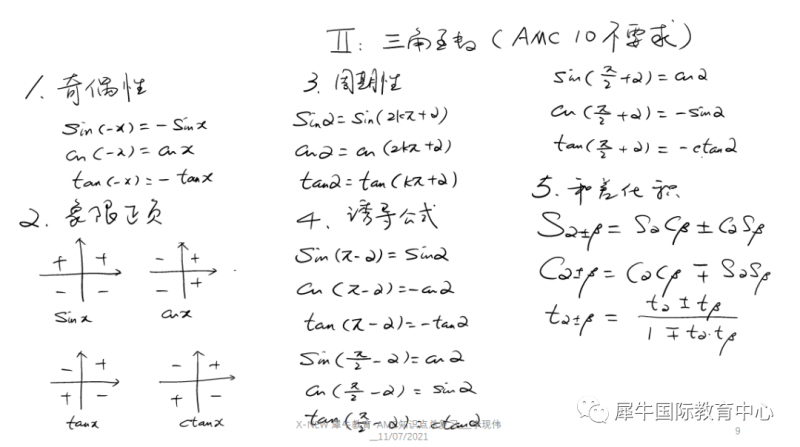 II: 三角函数 (AMC 10 不要求)
1. 奇偶性
sin(-x) = -sinx
cos(-x) = cosx
tan(-x) = -tanx
2. 象限正负
+ +
- -
sinx
- +
- +
cosx
- +
+ -
tanx
- +
+ -
ctanx
3. 周期性
sinα = sin(2kπ+α)
cosα = cos(2kπ+α)
tanα = tan(kπ+α)
4. 诱导公式
sin(π-α) = sinα
cos(π-α) = -cosα
tan(π-α) = -tanα
sin(π/2-α) = cosα
cos(π/2-α) = sinα
tan(π/2-α) = ctanα
sin(π/2+α) = cosα
cos(π/2+α) = -sinα
tan(π/2+α) = -ctanα
5. 和差化积
Sα±β = SαCβ ± CαSβ
Cα±β = CαCβ ∓ SαSβ
tα±β = (tα ± tβ)/(1 ∓ tα·tβ)
犀牛国际教育中心
X-NEW 犀牛教育-AMC知识点
__11/07/2021
9